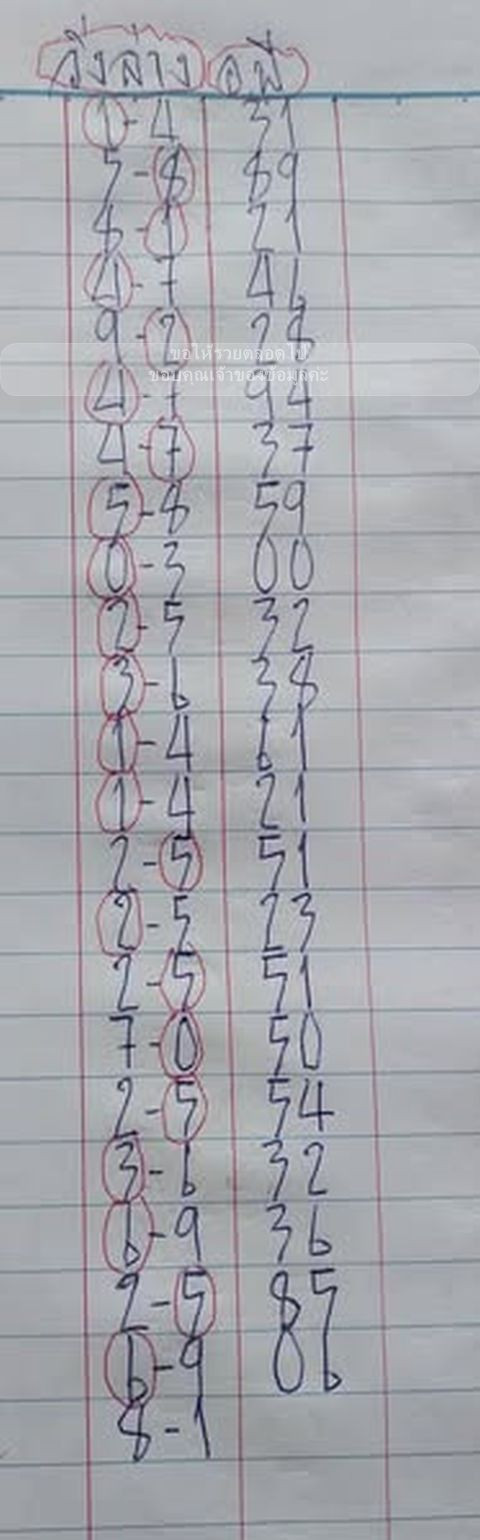 วิ่งล่าง อพี่
1-4 31
5-8 89
8-1 21
4-7 46
9-2 28
ขอให้รวยตลอดไป
ขอบคุณเจ้าของข้อมูลคะ
4-7 94
4-7 37
5-8 59
0-3 00
2-5 32
3-6 38
1-4 61
1-4 21
2-5 51
2-5 23
2-5 51
7-0 50
2-5 54
3-6 32
6-9 36
2-5 85
6-9 06
8-1